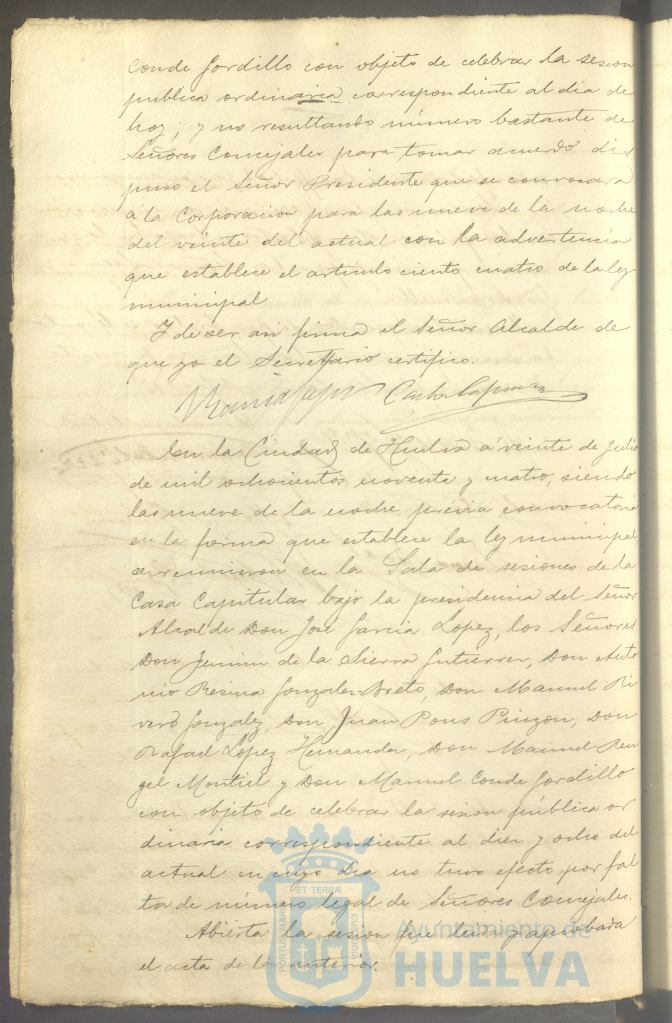 Conde Gordillo con objeto de celebrar la sesion
publica ordinaria correspondiente al dia de
hoy; y no resultando número bastante de
Señores Concejales para tomar acuerdo dis
puso el Señor Presidente que se convocara
á la Corporacion para las nueve de la noche
del veinte del actual con la advertencia
que establece el artículo ciento cuatro de la ley
municipal
Y de ser asi firma el Señor Alcalde de
que yo el Secretario certifico.
En la Ciudad de Huelva á veinte de Julio
de mil ochocientos noventa y cuatro, siendo
las nueve de la noche, prévia convocatoria
en la forma que establece la ley municipal
se reunieron en la Sala de sesiones de la
Casa Capitular bajo la presidencia del Señor
Alcalde Don José Garcia Lopez, los Señores
Don de la Sierra Gutierrez, Don Anto
nio Resina Gonzalez-Breto, Don Manuel Ri
vero Gonzalez, Don Juan Pons Pinzon, Don
Rafael Lopez Hernandez, Don Manuel Ren
gel Montiel y Don Manuel Conde Gordillo
con objeto de celebrar la sesion pública or
dinaria correspondiente al diez y ocho del
actual en cuyo dia no tuvo efecto por fal
ta de número legal de Señores Concejales.
Abierta la sesion fue leida y aprobada
el acta de la anterior.
ET TERRÆ
PORTUS MARIS
CUSTODIA
Ayuntamiento de
HUELVA